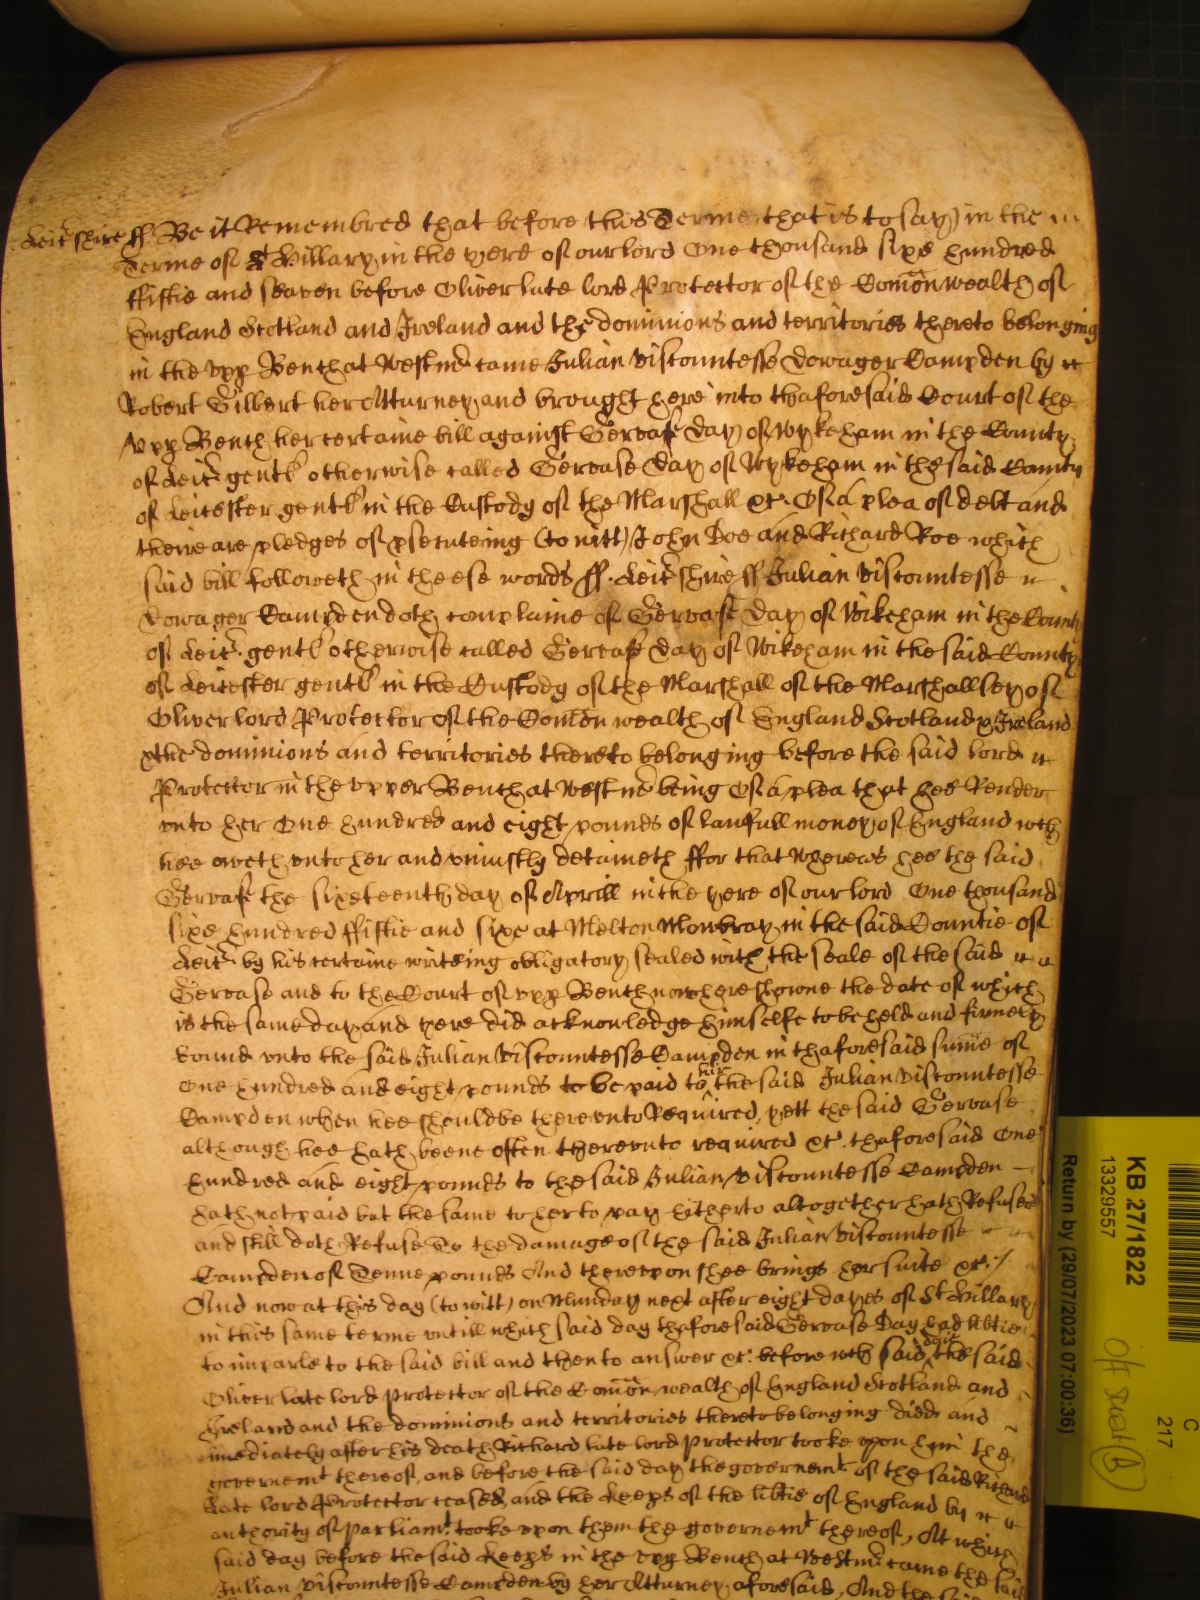 Leic shire ss Be it Remembred that before this Terme that is to say in the
Terme of St Hillary in the yere of our lord One thousand sixe hundred
ffiftie and seaven before Oliver late lord Protector of the Comon wealth of
England Scotland and Ireland and the dominions and territories thereto belonging
in the vpp Bench at Westmr came Julian Viscountesse Dowager Campden by
Robert Gilbert her Atturney and brought here into thaforesaid Court of the
vpp Bench her certaine bill against Gervase Day of Wykeham in the County
of Leicr gentl otherwise called Gervase Day of Wykeham in the said County
of Leicester gentl in the Custody of the Marshall &c. Of a plea of debt and
there are pledges of psecuteing (to witt) John Doe and Richard Roe which
said bill followeth in theese words ss. Leicr shire ss Julian Viscountesse
Dowager Campden doth complaine of Gervase Day of Wikeham in the County
of Leicr. gentl otherwise called Gervase Day of Wikeham in the said County
of Leicester gentl in the Custody of the Marshall of the Marshallsey of
Oliver lord Protector of the Comon wealth of England Scotland & Ireland
& the dominions and territories thereto belonging before the said lord
Protector in the vpper Bench at Westmr being Of a plea that hee Render
vnto her One hundred and eight pounds of lawfull money of England wch
hee oweth vnto her and vniustly detaineth ffor that Whereas hee the said
Gervase the sixteenth day of Aprill in the yere of our lord One thousand
sixe hundred ffiftie and sixe at Melton Mowbray in the said Countie of
Leicr by his certaine writeing obligatory sealed with the seale of the said
Gervase and to the Court of vpp Bench now here showne the date of which
is the same day and yere did acknowledge himselfe to be held and firmely
bound vnto the said Julian Viscountesse Campden in thaforesaid sume of
One hundred and eight pounds to be paid to her the said Julian Viscountesse
Campden when hee should be therevnto Required, yett the said Gervase
although hee hath beene often therevnto required &c. thaforesaid One
hundred and eight pounds to the said Julian Viscountesse Campden
hath not paid but the same to her to pay hitherto altogether hath Refused
and still doth Refuse To the damage of the said Julian Viscountesse
Campden of Tenne pounds And therevpon shee brings her suite &c:/
And now at this day (to witt) on Munday next after eight dayes of St Hillary
in this same terme vntill which said day thaforesaid Gervase Day had libtie
to imparle to the said bill and then to answer &c: before wch said daie the said
Oliver late lord Protector of the Comon wealth of England Scotland and
Ireland and the dominions and territories thereto belonging died and
imediately after his death Richard late lord Protector tooke vpon him the
governemt thereof, and before the said day the governemt of the said Richard
late lord Protector ceased, and the Keeps of the libtie of England by
authority of Parliamt tooke vpon them the governemt thereof, At which
said day before the said Keeps in the vpp Bench at Westmr came the said
Julian Viscountesse Campden by her Atturney aforesaid, And the said
KB 27/1822
13329557
Return by (29/07/2023 07:00:36)
C
217